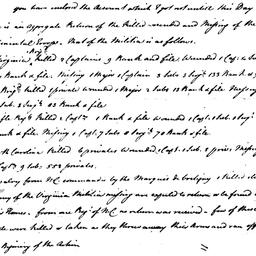 you have inclosed the account which I got not untill this Day
is an aggregate Return of the Killed wounded and Missing of the
Continental Troops. That of the Militia is as follows.
Virginia, Killed 2 Captains 9 Rank and file. Wounded 1 Capt. 4 Sub
Rank & file. Missing 1 Major 1 Captain 3 Subs 2 Serjt 133 Rank &
Regt. Killed 1 private wounded 1 Major 2 Subs 13 Rank & file Missing
Subs. 2 Serjt 83 Rank & file
Rifle Regt Killed 2 Capt 1 Rank & file wounded 1 Capt 1 Sub 1 Serjt
Rank & file. Missing 1 Capt 7 Subs 8 Serjt 70 Rank & file
North Carolina Killed 6 privates Wounded 1 Capt. 1 Sub. 3 privts Missing
Capts 9 Subs. 552 privates.
Cavalry from NC command by the Marquis de Killed
many of the Virginia Militia missing are expected to return or be found at
their Homes. from one Regt of NC no return was received few of these
were Killed or taken as they threw away their Arms and ran off
Begining of the Action